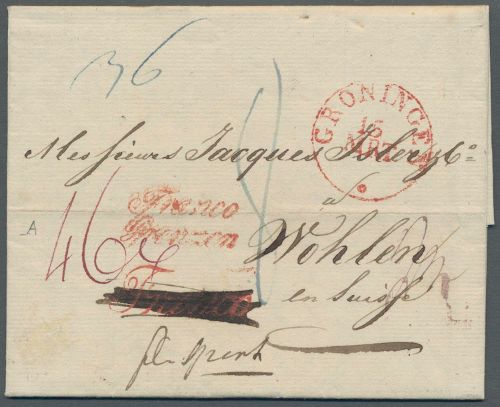 36
GRONINGEN
15
MRT
Messieurs Jacques Isler & Co
à
A
Franco
Grenzen
Wohlen
46
Franco
en Suisse